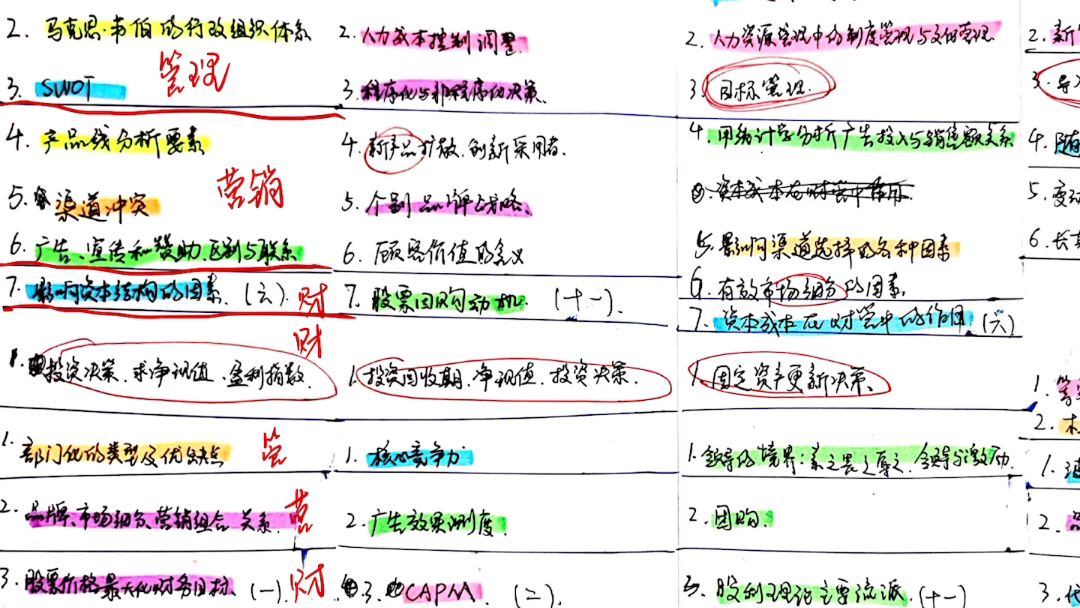 2. 马克思·韦伯的行政组织体系
3. SWOT 管理
4. 产品线分析要素
5. 渠道冲突 营销
6. 广告、宣传和赞助区别与联系
7. 影响资本结构的因素. (六). 财
财
1. 投资决策. 求净现值. 盈利指数.
1. 部门化的类型及优缺点 管
2. 品牌、市场细分、营销组合 关系. 营
3. 股票价格最大化财务目标. (一). 财
2. 人力成本控制 调整.
3. 程序化与非程序化决策.
4. 新产品扩散. 创新采用者.
5. 个别品牌战略.
6. 顾客价值的含义
7. 股票回购动机. (十一).
1. 投资回收期. 净现值. 投资决策.
1. 核心竞争力
2. 广告效果测度.
3. CAPM. (二).
2. 人力资源管理中的制度管理与文化管理
3. 目标管理.
4. 用统计学分析广告投入与销售额关系
资本成本在财管中作用.
5. 影响渠道选择的各种因素
6. 有效市场细分的因素.
7. 资本成本在财管中的作用 (六)
1. 固定资产更新决策.
1. 领导的境界: 领导与激励.
2. 团购.
3. 股利理论主要流派. (十一)
2. 新
3. 导
4. 随
5. 变动
6. 长
1.
2.
1.
2. 品
3. 代